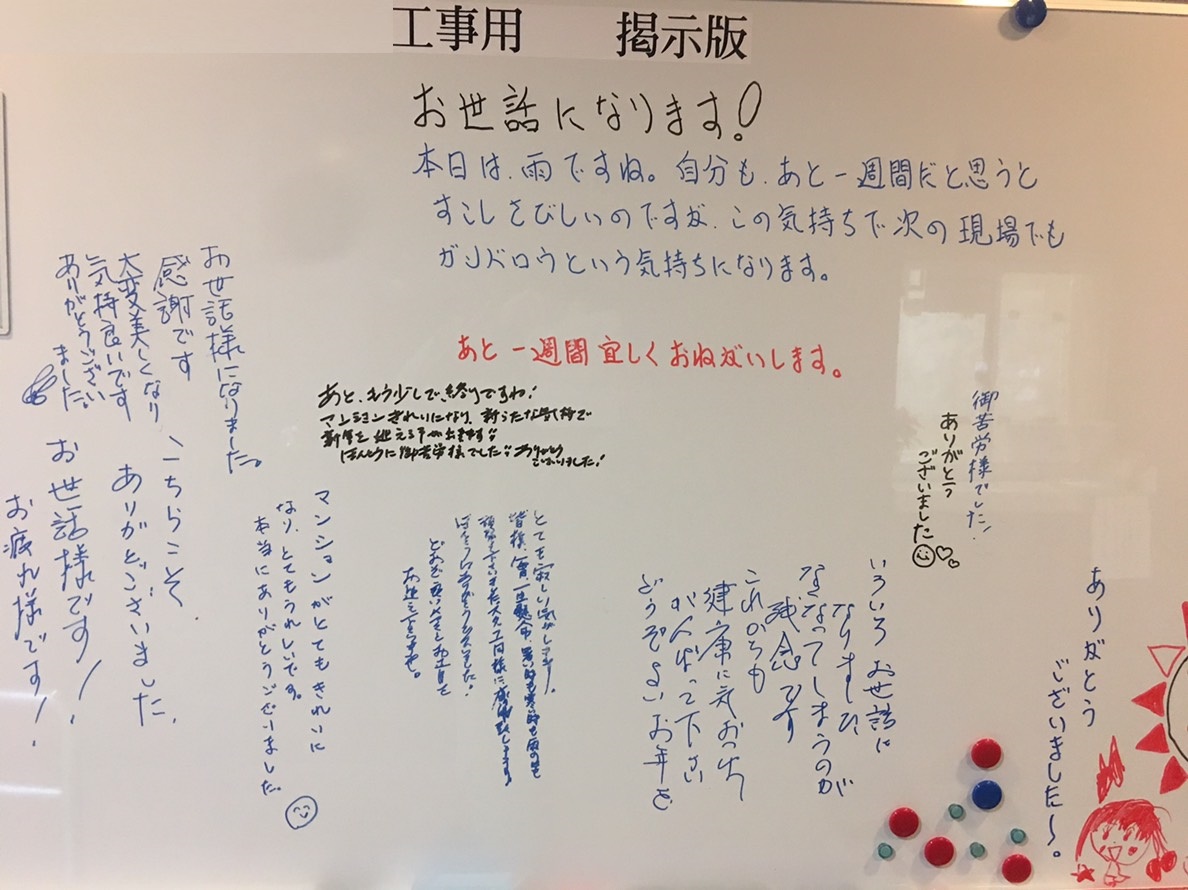 工事用 掲示版
お世話になります!
本日は、雨ですね。自分も、あと一週間だと思うと
すこしさびしいのですが、この気持ちで次の現場でも
ガンバロウという気持ちになります。
あと一週間宜しくおねがいします。
あと、もう少しで、終りですね!
マンションきれいになり、新らたな気持で
新年を迎える事が出来ます
ほんとうに御苦労様でした ありがとう
ございました!
御苦労様でした!
ありがとう
ございました
お世話様になりました。
感謝です
大変美しくなり
気持良いです
ありがとうござい
ました。
こちらこそ
ありがとございました、
お世話様です!
お疲れ様です!
マンションがとてもきれいに
なり、とてもうれしいです。
本当にありがとうございました。
とても寂しい気がします。
皆様、一生懸命、
ほんとうにありがとうございました!
どうぞ良い年を
お迎え下さいませ。
いろいろお世話に
なりました
なくなってしまうのが
残念です
これからも
健康に気おつけ
がんばって下さい
どうぞよいお年を
ありがとう
ございました〜。